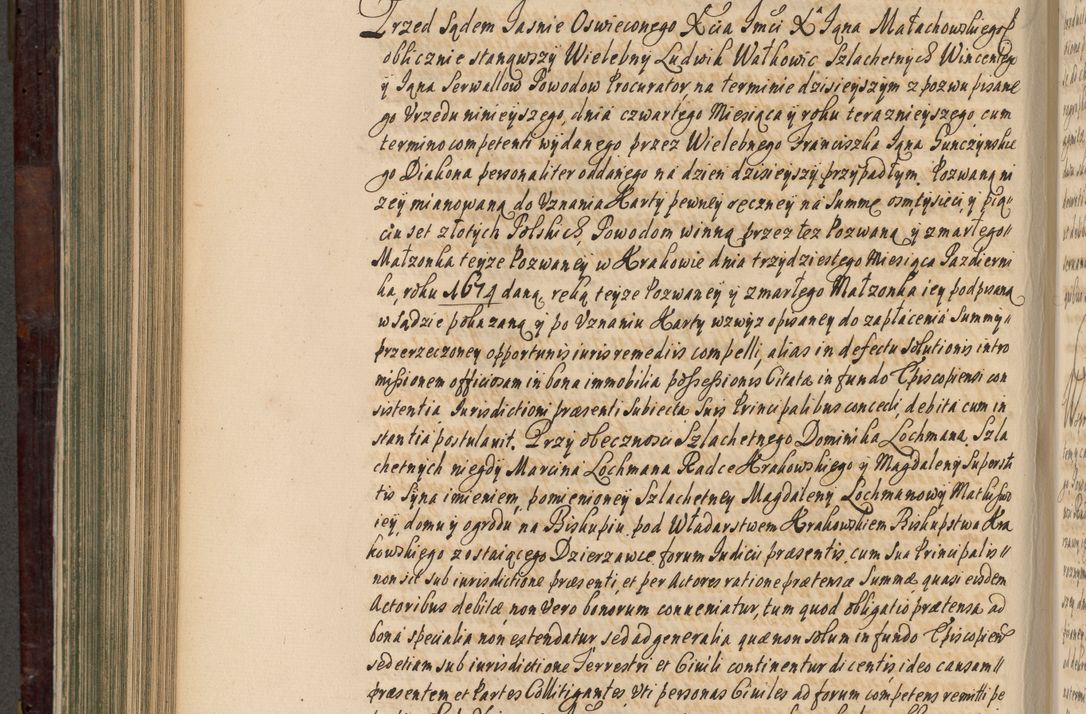 Przed Sądem Jasnie Oswieconego Xcia Jmci Xa Jgna Małachowskiego
oblicznie stanąwszy Wielebny Ludwik Watkowic Szlachetnych Wincentego
y Jgna Serwallow Powodow Procurator na terminie dzisieyszym z pozwu pisane
go Vrzedu ninieyszego, dnia czwartego Miesiąca y roku terazniejszego cum
termino competenti wydanego przez Wielebnego Franciszka Jgna Gunczynskie
go Diakona personaliter oddanego na dzien dzisieyszy przypadłym. Pozwaną ni
zey mianowaną do Vznania Karty pewney ręczney na Summę osm tysięcy, y pię„
ciu set złotych Polskich, Powodom winną przez tez Pozwaną y zmarłego„
Małzonka teyze Pozwaney w Krakowie dnia trzydziestego Miesiąca Pazdierni
ka, roku 1674 daną, ręką teyze Pozwaney y zmarłego Małzonka iey podpisaną
w Sądzie pokazaną y po Vznaniu Karty wzwyz opisaney do zapłacenia Summy„
przerzeczoney opportunis iuris remediis compelli, alias in defectu Solutionis intro
missionem officiosam in bona immobilia possessionis Citatæ in fundo Episcopiensi con
sistentia Jurisdictioni præsenti Subiecta Suis Principalibus concedi, debita cum in
stantia postulavit. Przy obecznosci Szlachetnego Dominika Lochmana. Szla
chetnych niegdy Marcina Lochmana Radce Krakowskiego y Magdaleny Supersti
tis Syna imieniem, pomienioney Szlachetney Magdaleny Lochmanowy Matki swo
iey, domu y ogrodu na Biskupiu pod Władarstwem Krakowskiem Biskupstwa Kra
kowskiego zostaiącego Dzierzawce forum Judicii præsentis, cum Sua Principalis„
non sit sub iurisdictione præsenti, et per Actores ratione prætensæ Summæ quasi eisdem
Actoribus debitæ, non Vero bonorum conveniatur, tum quod obligatio prætensa ad
bona specialia non extendatur sed ad generalia quæ non solum in fundo Episcopien
sed etiam sub iurisdictione Terrestri et Civili continentur dicentis, ideo causam„
præsentem et Partes Collitigantes, Vti personas Civiles ad forum competens remitti pe